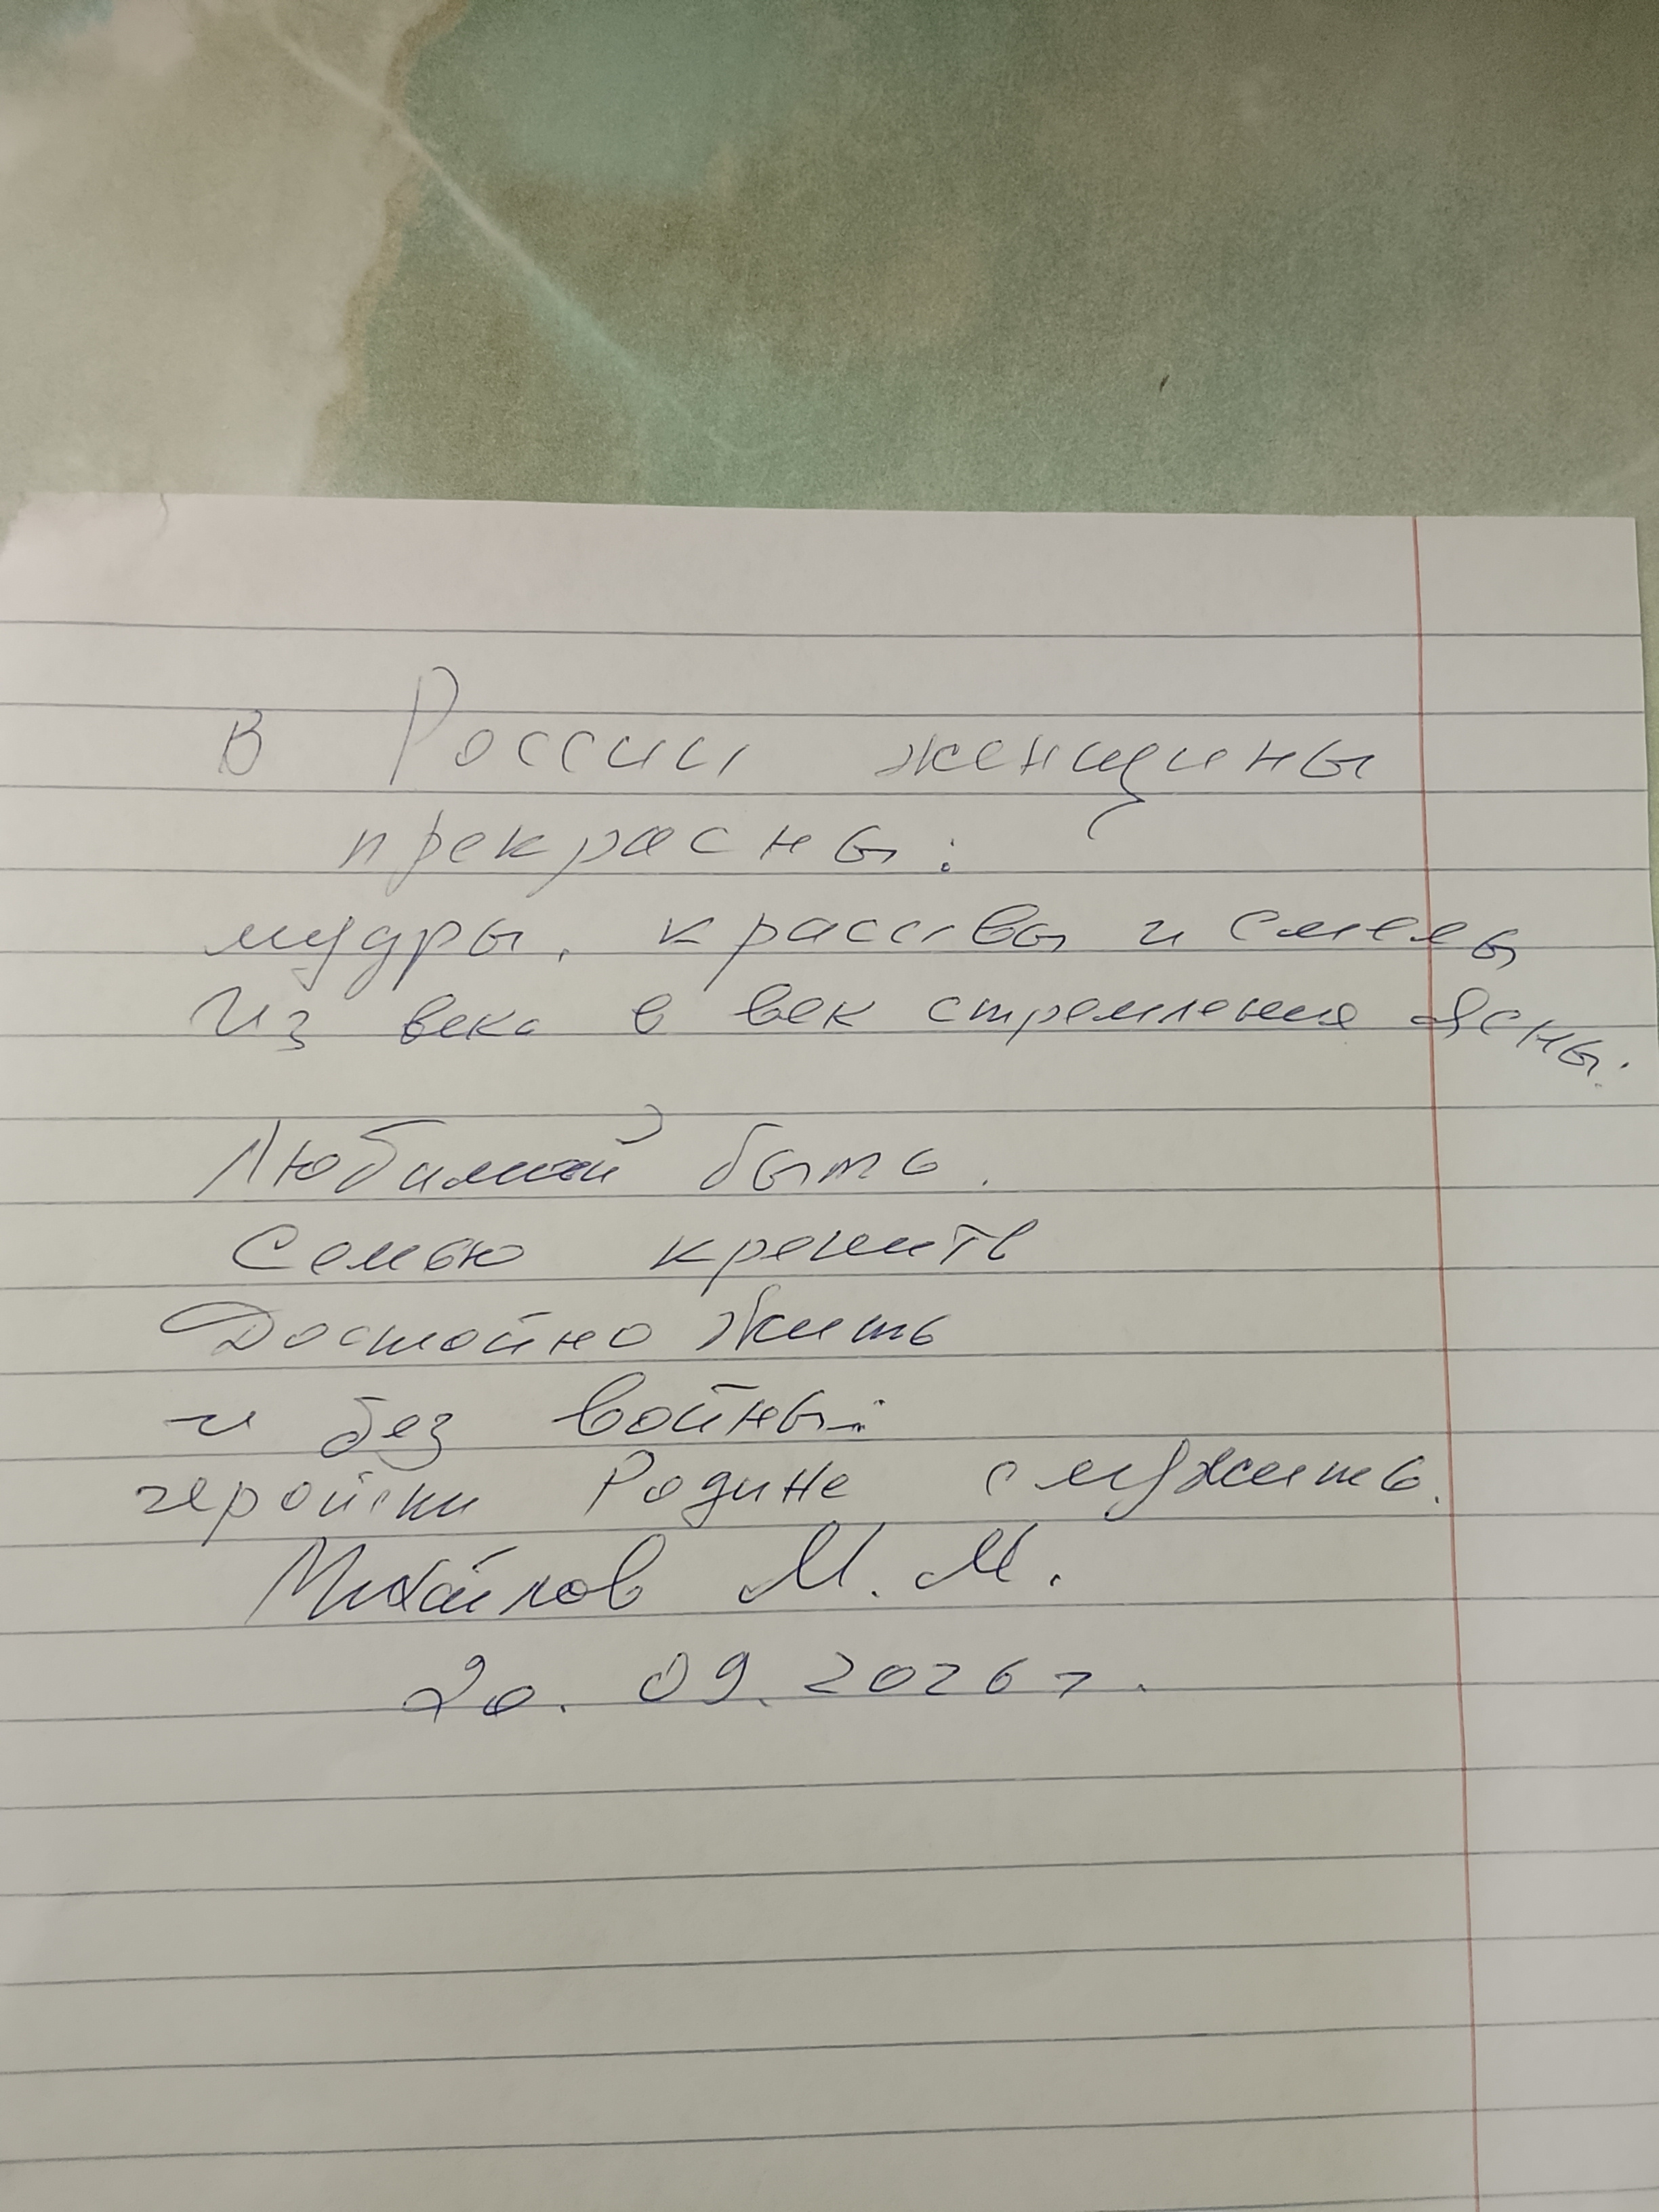 В России женщины
прекрасны:
мудры, красивы и смелы
Из века в век стремления ясны.
Любимой быть.
Семью крепить
Достойно жить
и без войны:
геройски Родине служить.
Михайлов М. М.
20. 09. 2026 г.